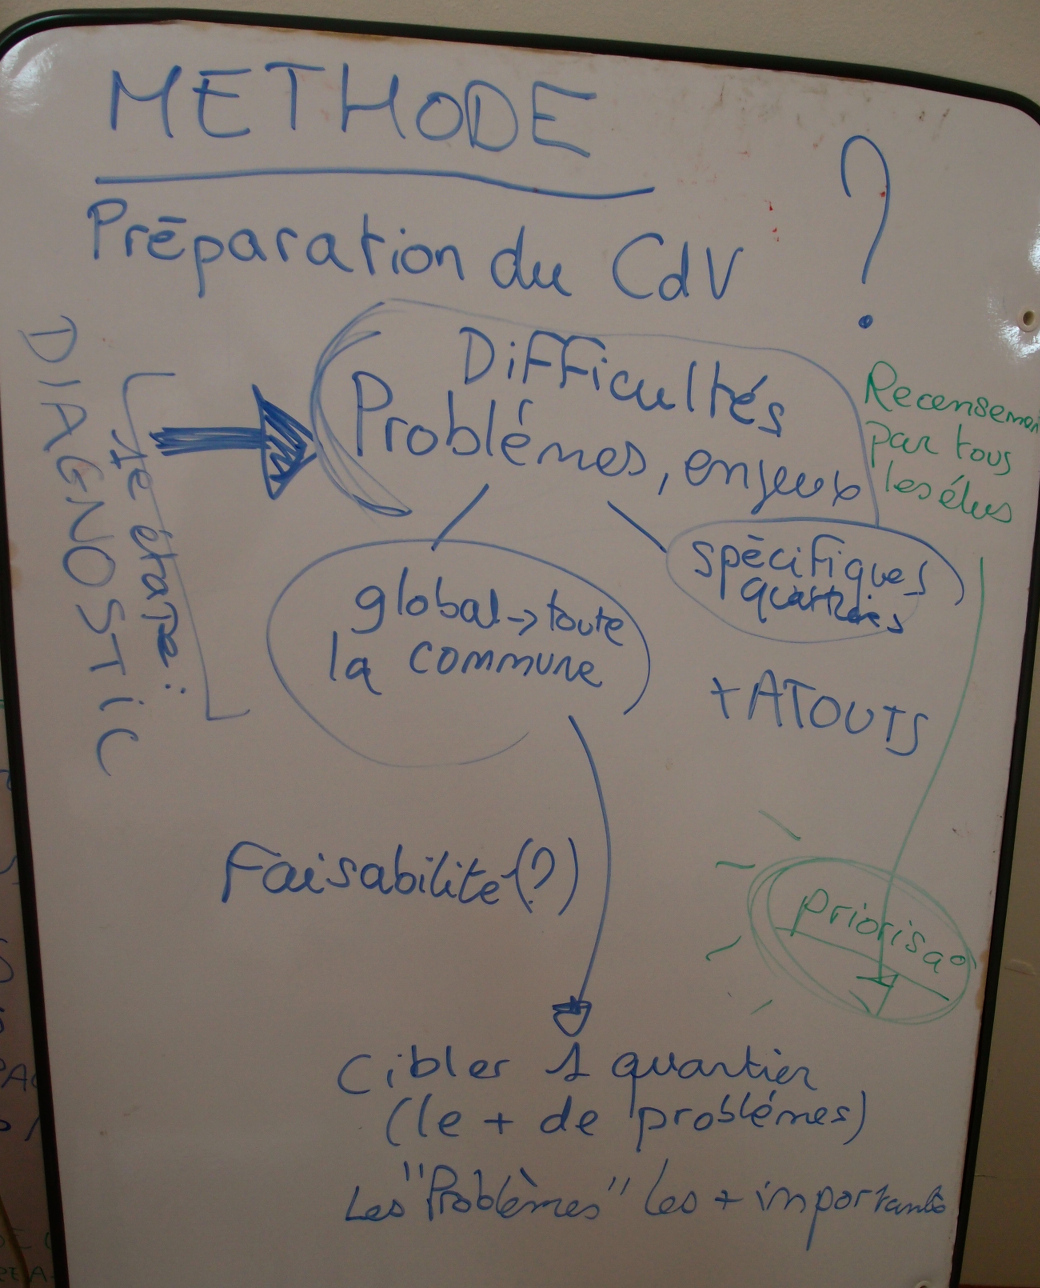 METHODE
Préparation du CdV
?
DIAGNOSTIC
1e étape:
Difficultés
Problèmes, enjeux
Recensemen
par tous
les élus
spécifiques
quartiers
global → toute
la commune
+ ATOUTS
Faisabilité (?)
priorisa°
Cibler 1 quartier
(le + de problèmes)
Les "Problèmes" les + importants